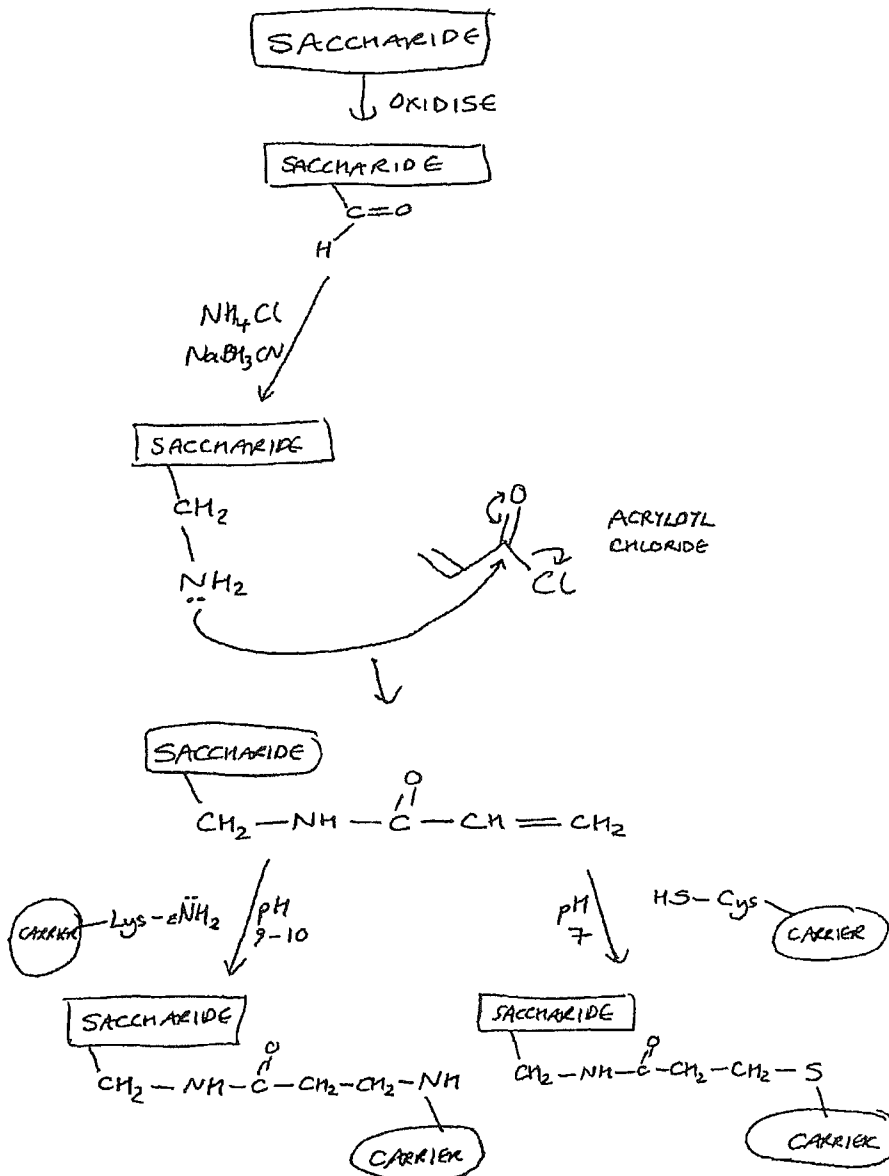 SACCHARIDE
OXIDISE
SACCHARIDE
C=O
H
NH4Cl
NaBH3CN
SACCHARIDE
CH2
NH2
O
Cl
ACRYLOYL
CHLORIDE
SACCHARIDE
O
CH2—NH—C—CH=CH2
CARRIER—Lys—εNH2
pH
9-10
pH
7
HS—Cys
CARRIER
SACCHARIDE
O
CH2—NH—C—CH2—CH2—NH
CARRIER
SACCHARIDE
O
CH2—NH—C—CH2—CH2—S
CARRIER